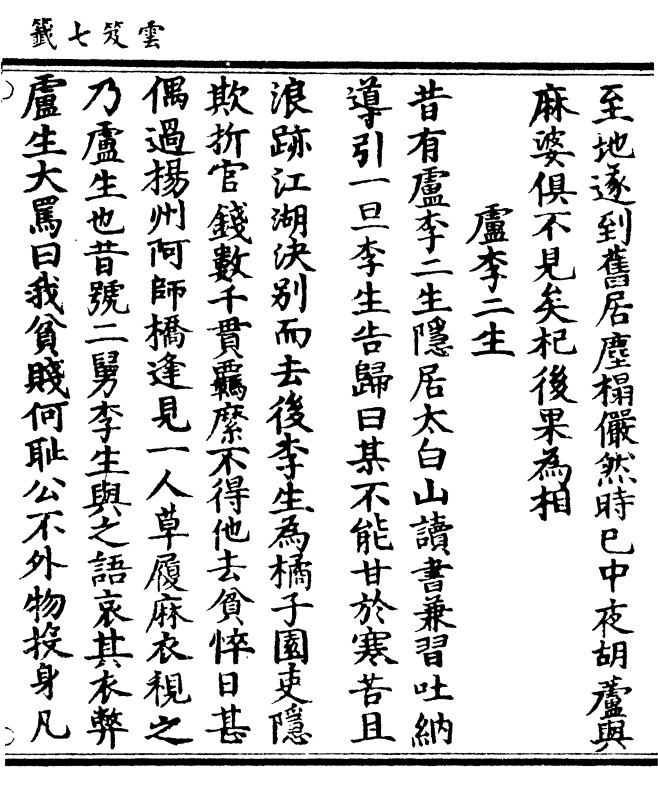 雲笈七籤
至地遂到舊居塵榻儼然時已中夜胡蘆與
麻婆俱不見矣杞後果為相
盧李二生
昔有盧李二生隱居太白山讀書兼習吐納
導引一旦李生告歸曰某不能甘於寒苦且
浪跡江湖決別而去後李生為橘子園吏隱
欺折官錢數千貫羈縻不得他去貧悴日甚
偶過揚州阿師橋逢見一人草履麻衣視之
乃盧生也昔號二舅李生與之語哀其衣弊
盧生大罵曰我貧賤何恥公不外物投身凡